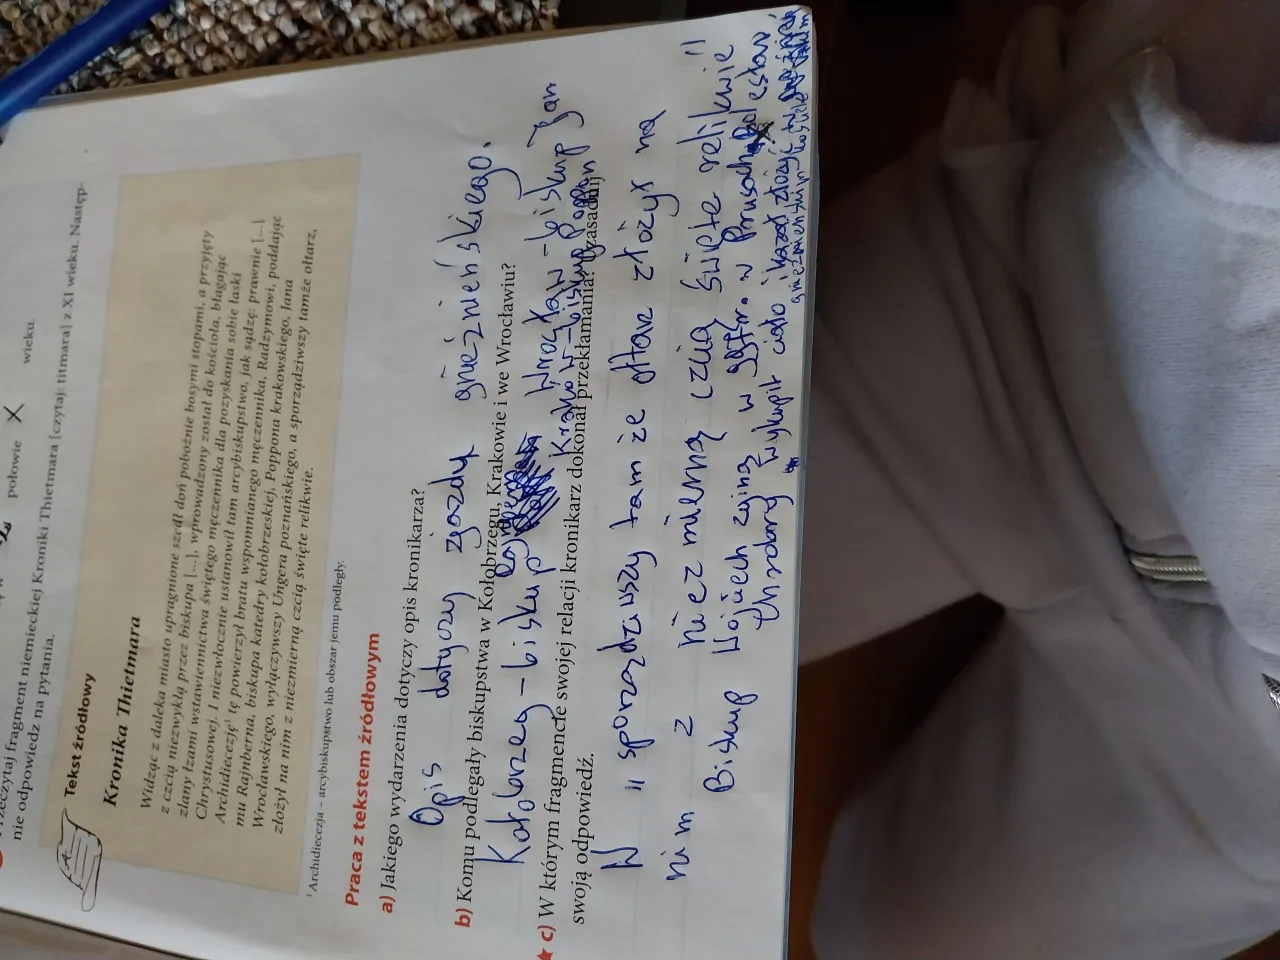 połowie X wieku.
Przeczytaj fragment niemieckiej Kroniki Thietmara [czytaj: titmara] z XI wieku. Następ-
nie odpowiedz na pytania.
Tekst źródłowy
Kronika Thietmara
Widząc z daleka miasto upragnione szedł doń pobożnie bosymi stopami, a przyjęty
z czcią niezwykłą przez biskupa [...], wprowadzony został do kościoła, błagając
zlany łzami wstawiennictwa świętego męczennika dla pozyskania sobie łaski
Chrystusowej. I niezwłocznie ustanowił tam arcybiskupstwo, jak sądzę: prawnie [...]
Archidiecezję¹ tę powierzył bratu wspomnianego męczennika, Radzymowi, poddając
mu Rajnberna, biskupa katedry kołobrzeskiej, Poppona krakowskiego, Jana
Wrocławskiego, wyłączywszy Ungera poznańskiego, a sporządziwszy tamże ołtarz,
złożył na nim z niezmierną czcią święte relikwie.
¹ Archidiecezja – arcybiskupstwo lub obszar jemu podległy.
Praca z tekstem źródłowym
a) Jakiego wydarzenia dotyczy opis kronikarza?
Opis dotyczy zjazdu gnieźnieńskiego.
b) Komu podlegały biskupstwa w Kołobrzegu, Krakowie i we Wrocławiu?
Kołobrzeg – biskup Rajnbern Wrocław – biskup Jan
Kraków – biskup Poppon
c) W którym fragmencie swojej relacji kronikarz dokonał przekłamania? Uzasadnij
swoją odpowiedź.
W "sporządziwszy tam że ołtarz złożył na
nim z niezmierną czcią święte relikwie"
Biskup Wojciech zginął w 997r. w Prusach. Bolesław
Chrobry wykupił ciało i kazał złożyć w
gnieźnieńskim